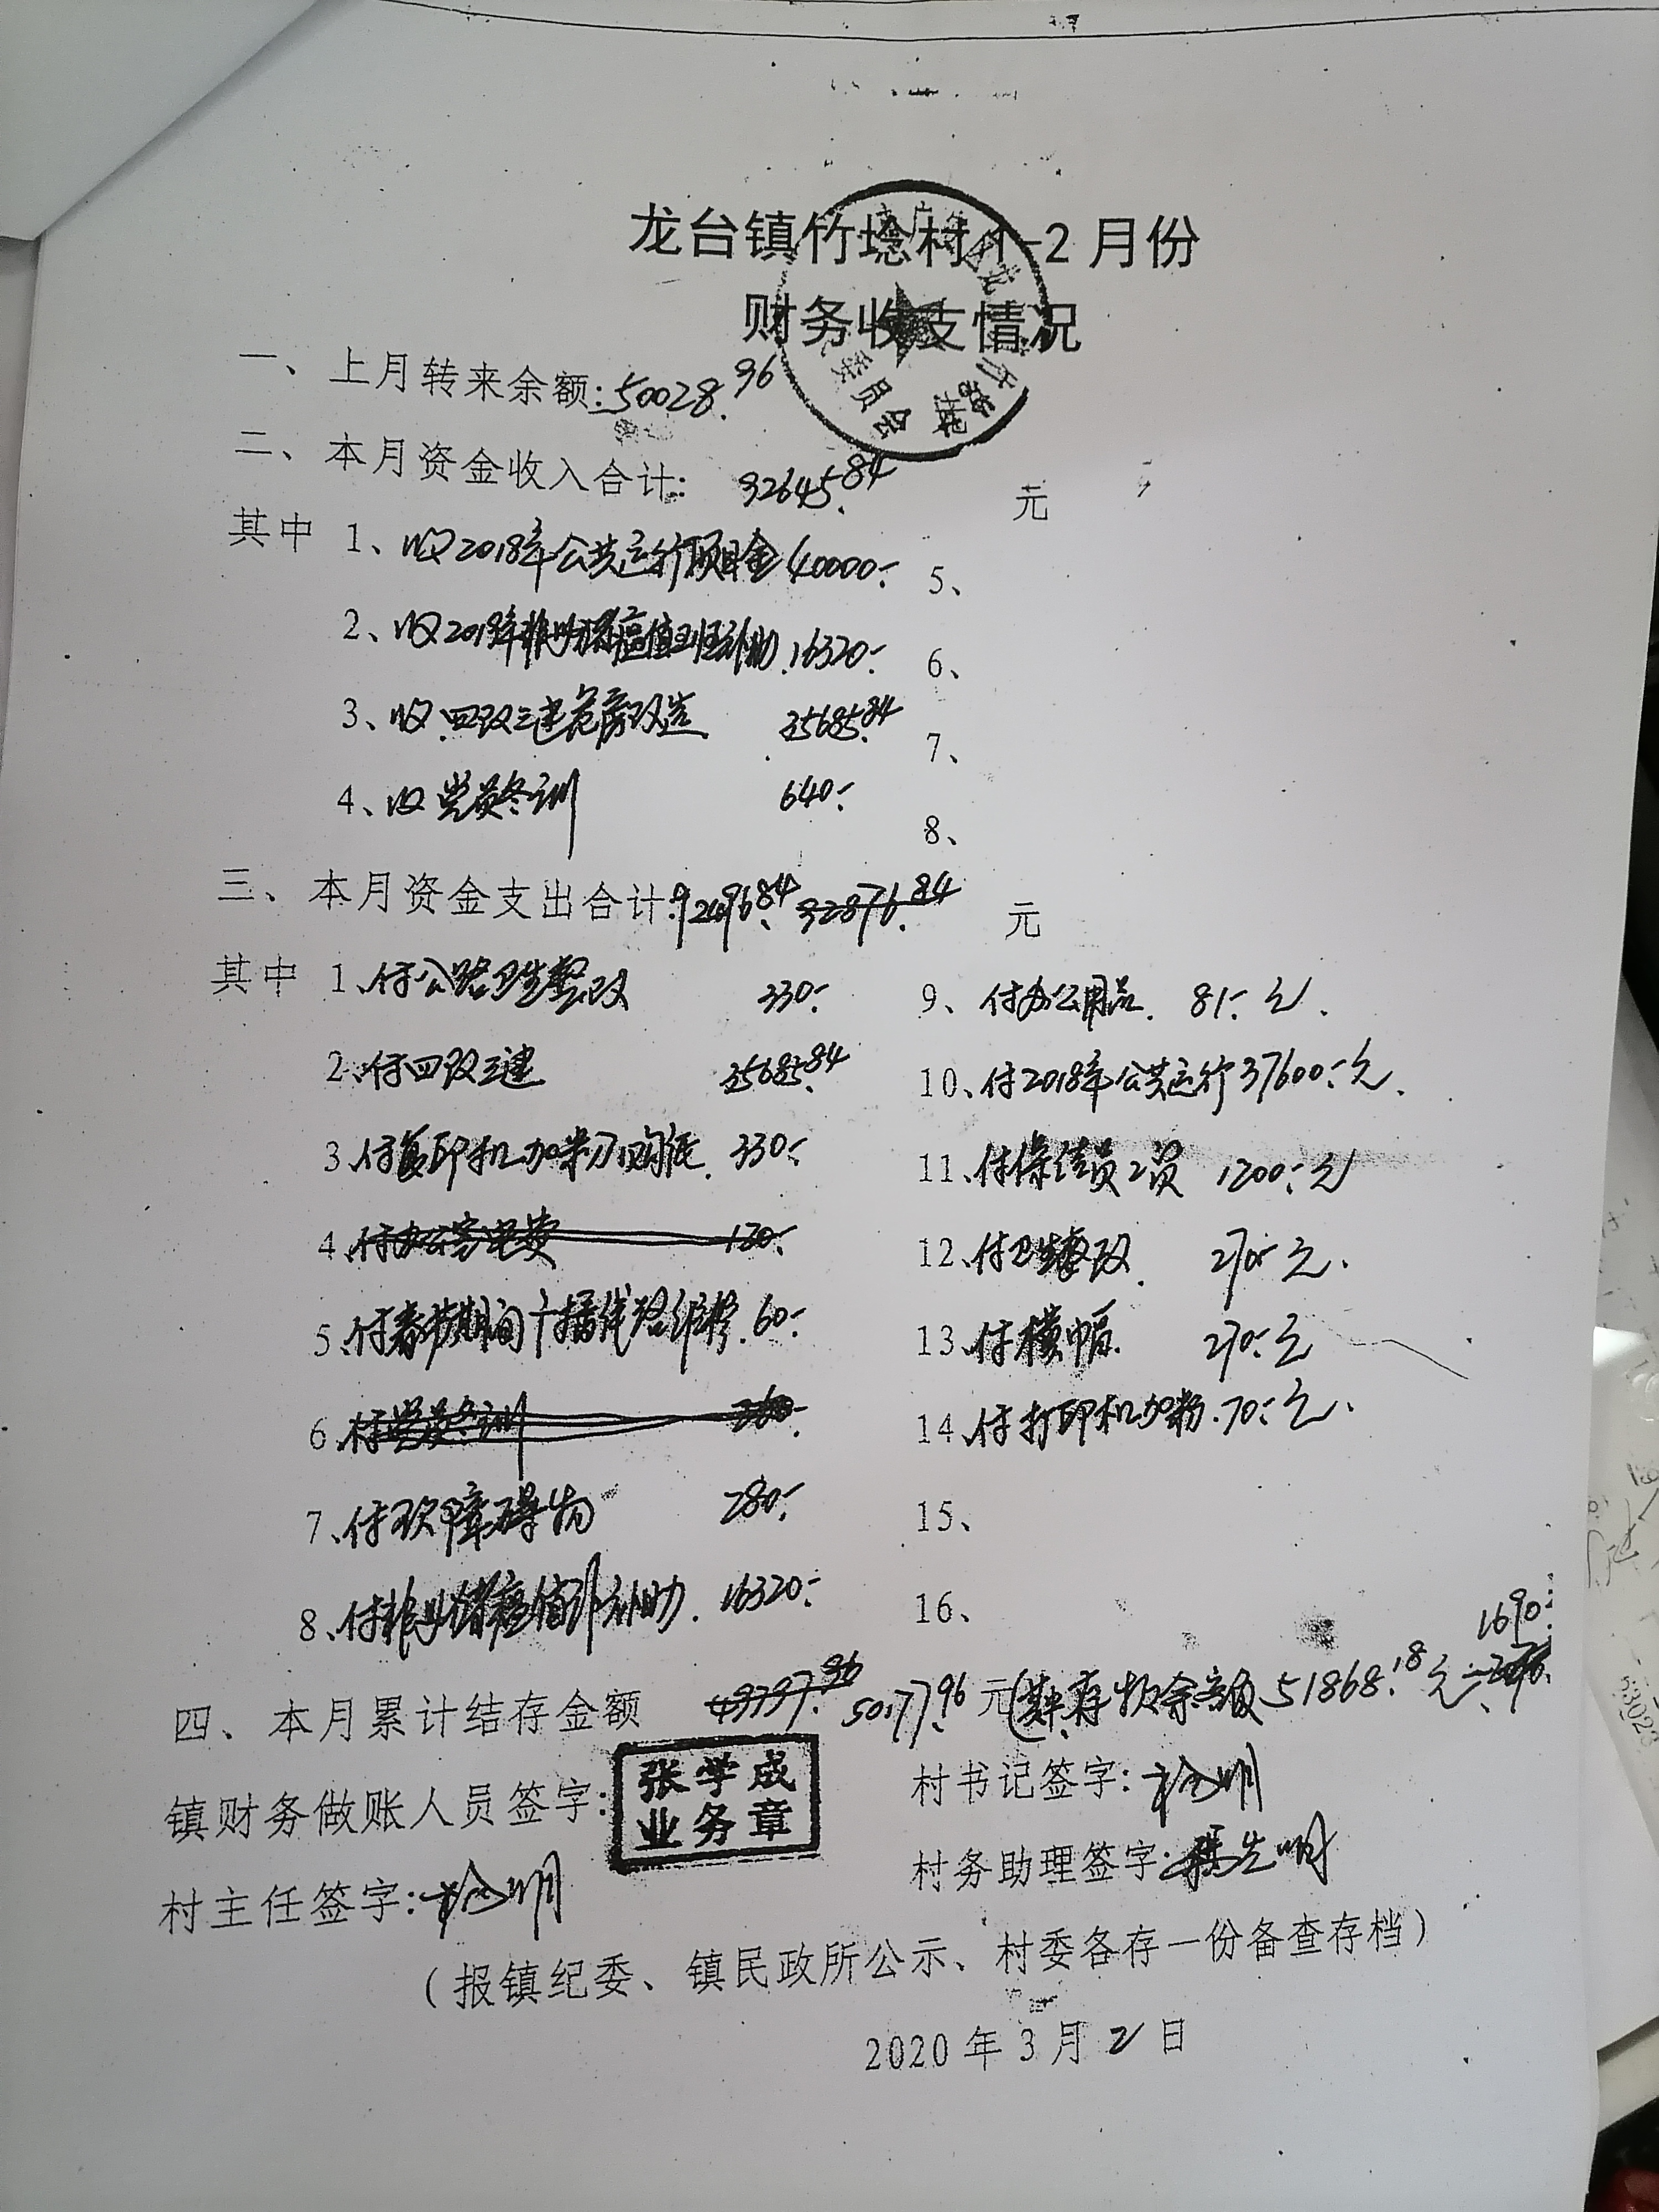 龙台镇竹埝村1-2月份
财务收支情况
一、上月转来余额:50028.96
二、本月资金收入合计: 92645.84 元
其中 1、收2018年公共运行项目金 40000.-
5、
2、收2019年非吵猪瘟值班补助. 16320.-
6、
3、收四改三建危房改造 35685.84
7、
4、收党员冬训 640.-
8、
三、本月资金支出合计:92496.84 92876.84 元
其中 1、付公路卫生整改 330.-
9、付办公用品. 81.-元.
2、付四改三建 35685.84
10、付2018年公共运行37600.-元.
3、付复印机加粉购纸. 330.-
11、付保洁员工资 1200.-元
4、付办公室电费 120.-
12、付卫生整改. 270.-元.
5、付春节期间广播线路维修. 60.-
13、付横幅. 270.-元
6、付党员冬训 260.-
14、付打印机加粉. 70.-元.
7、付砍障碍物 280.-
15、
8、付非吵猪瘟值班补助. 16320.-
16、
1690.-
四、本月累计结存金额 49797.96 50177.96元(其中存折余额51868.18元
镇财务做账人员签字:
张学成
业务章
村书记签字:
村务助理签字:
村主任签字:
(报镇纪委、镇民政所公示、村委各存一份备查存档)
2020年3月2日